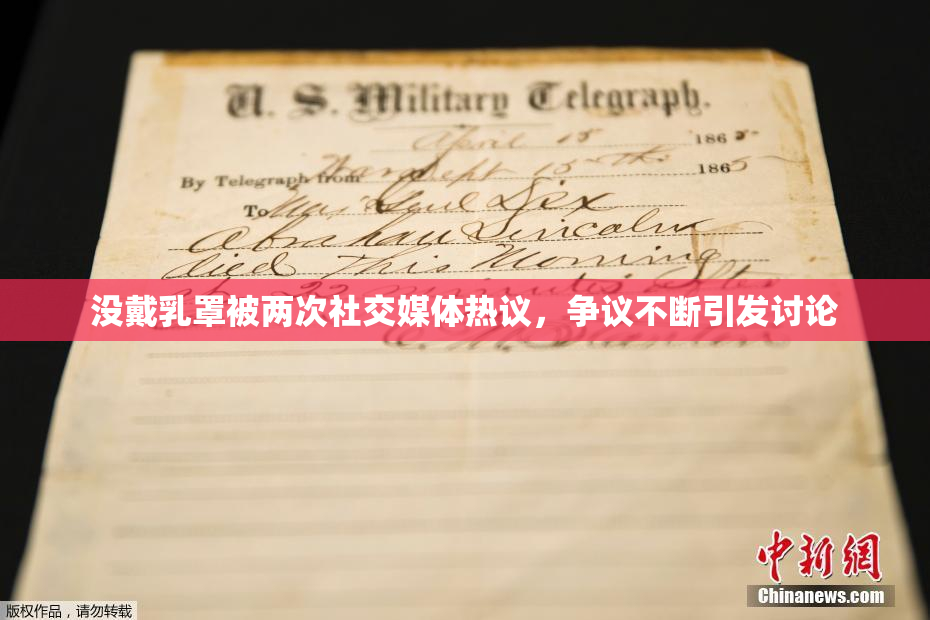 U. S. Military Telegraph.
April 15 1865
By Telegraph from War Dept 15th 1865
To Maj Genl Dix
Abraham Lincoln
died This Morning
at 22 minutes after
没戴乳罩被两次社交媒体热议，争议不断引发讨论
E. M. Stanton
中新网
Chinanews.com
版权作品，请勿转载